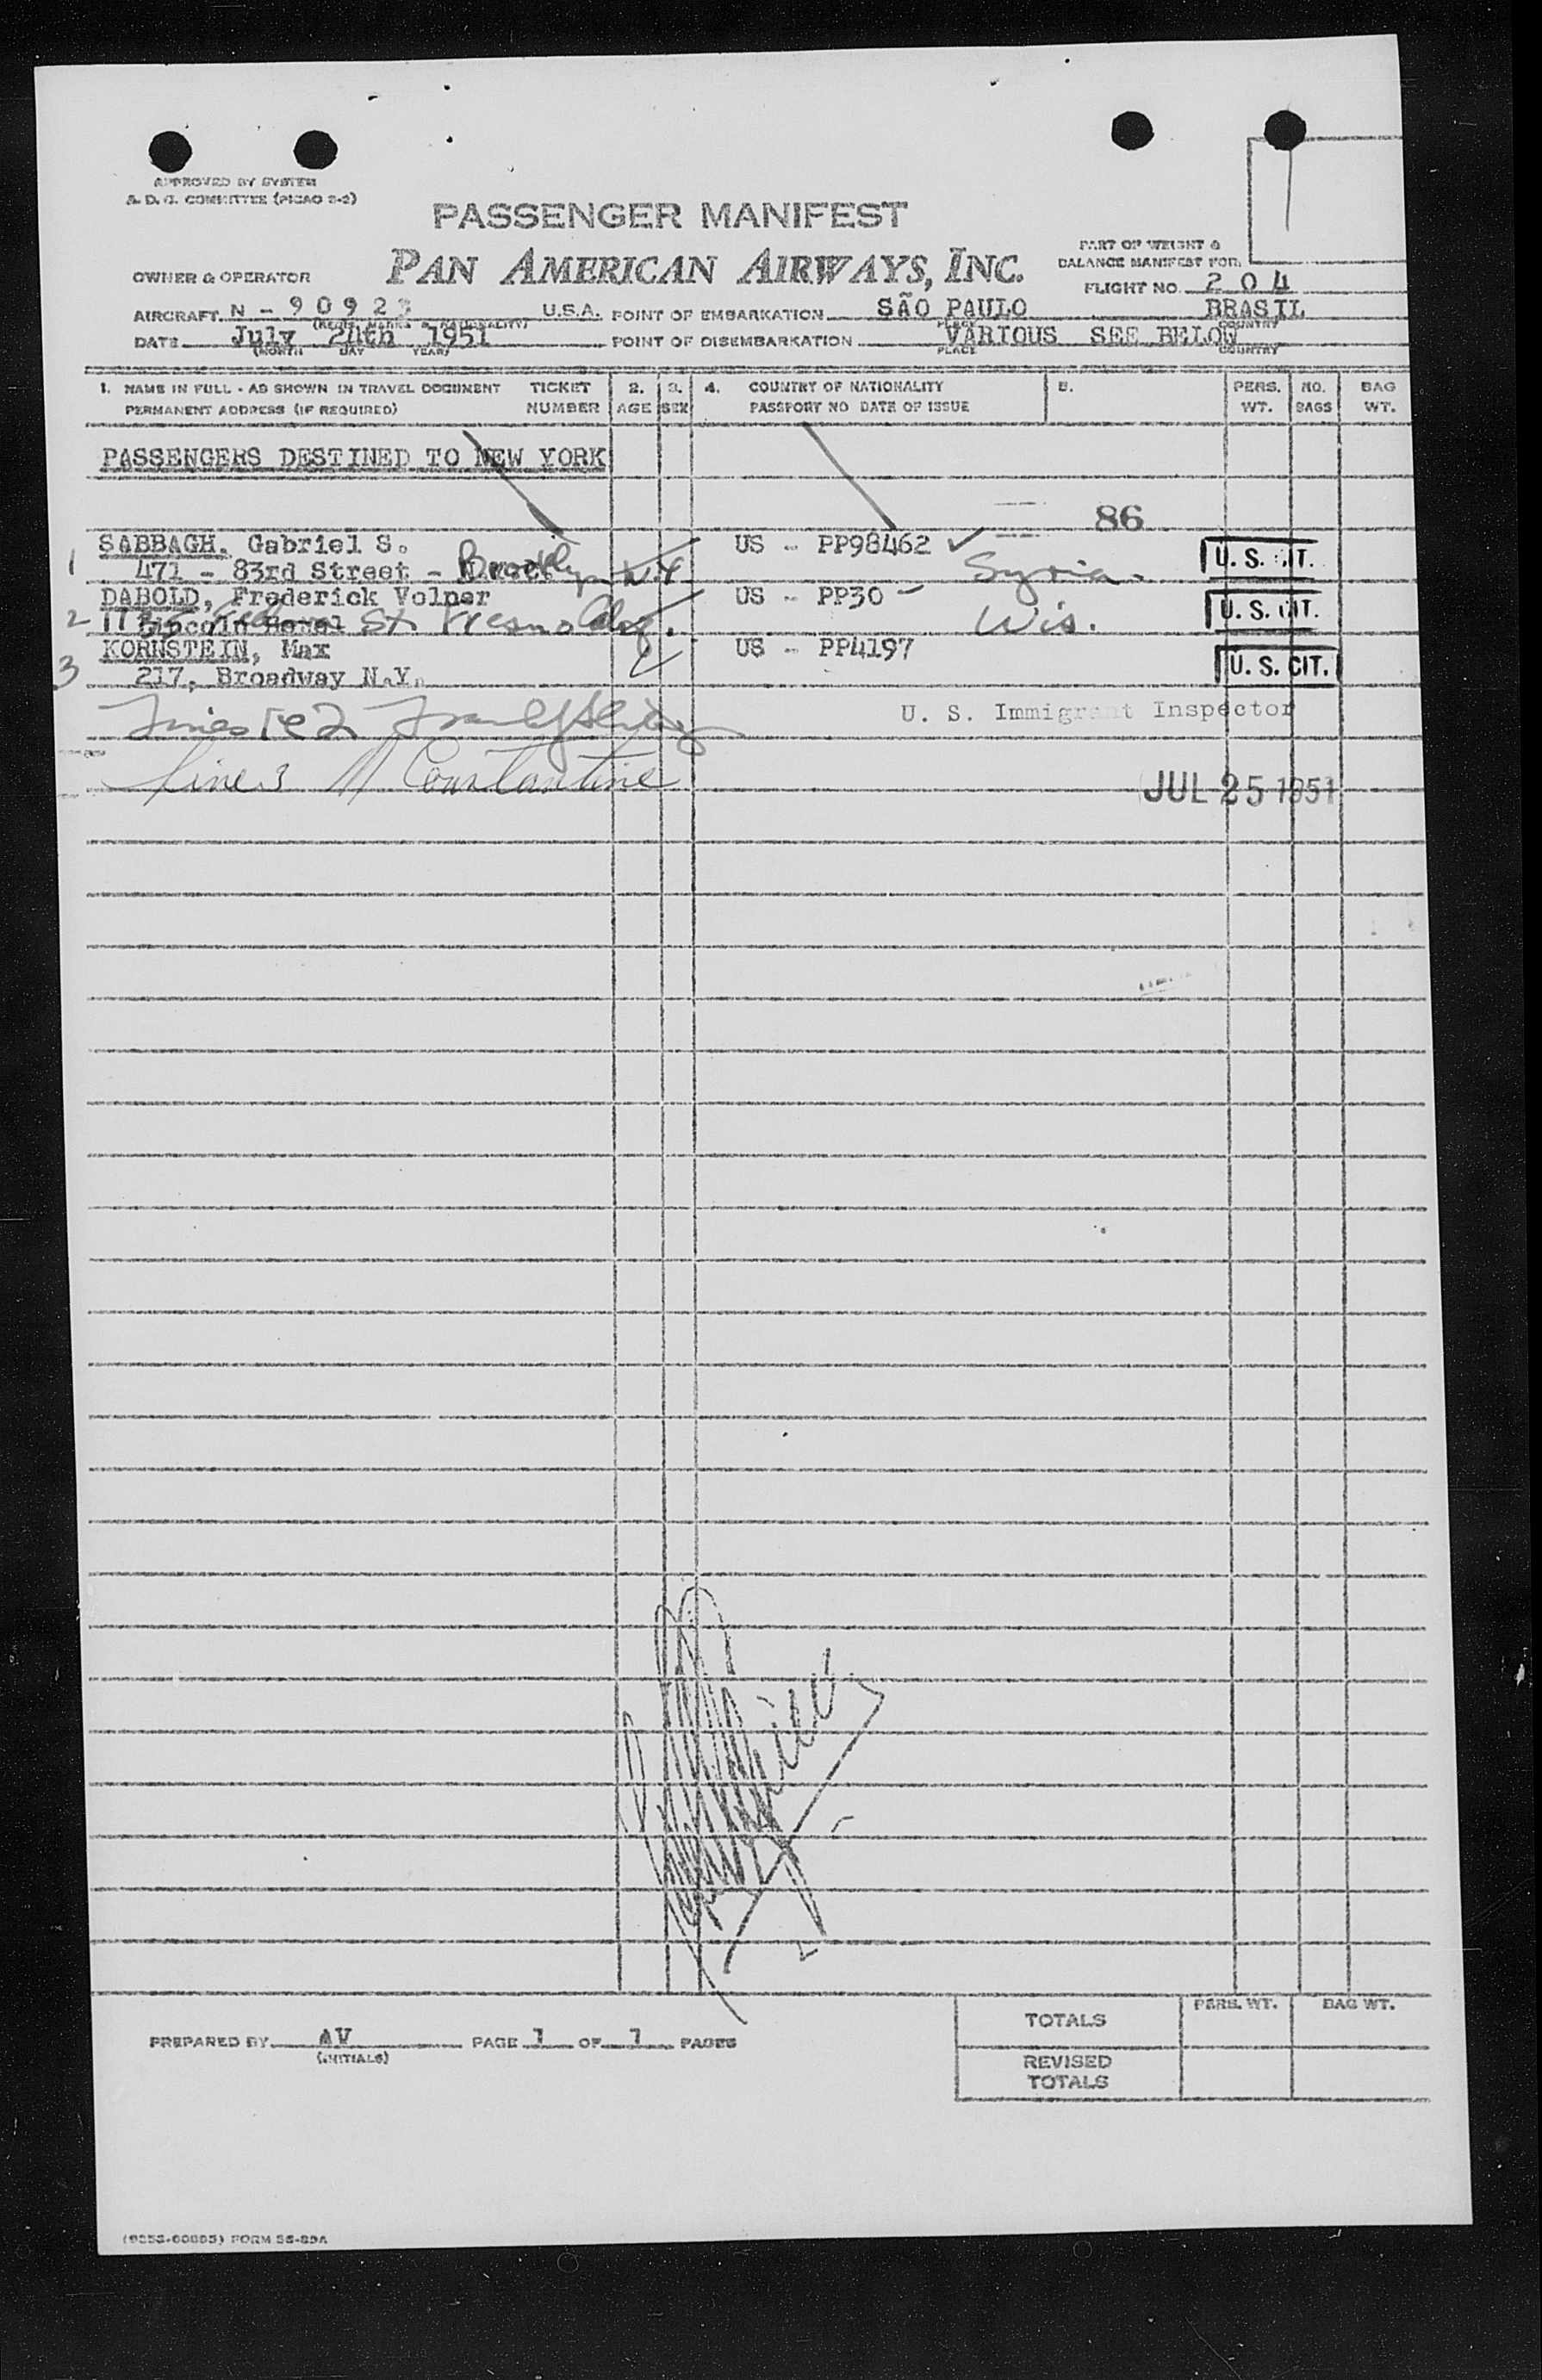 APPROVED BY SYSTEM
A. D. G. COMMITTEE (PICAO 2-2)
PASSENGER MANIFEST
PAN AMERICAN AIRWAYS, INC.
OWNER & OPERATOR
PART OF WEIGHT &
BALANCE MANIFEST FOR
FLIGHT NO. 204
AIRCRAFT N - 90923 U.S.A. POINT OF EMBARKATION SÃO PAULO BRASIL
(REGIS. MARKS & NATIONALITY) PLACE COUNTRY
DATE July 24th 1951 POINT OF DISEMBARKATION VARIOUS SEE BELOW
(MONTH DAY YEAR) PLACE COUNTRY
1. NAME IN FULL - AS SHOWN IN TRAVEL DOCUMENT TICKET 2. 3. 4. COUNTRY OF NATIONALITY 5. PERS. NO. BAG
PERMANENT ADDRESS (IF REQUIRED) NUMBER AGE SEX PASSPORT NO DATE OF ISSUE WT. BAGS WT.
PASSENGERS DESTINED TO NEW YORK
86
SABBAGH, Gabriel S. US - PP98462 ✓ U. S. CIT.
1 471 - 83rd Street - Brooklyn N.Y Syria.
DABOLD, Frederick Volner US - PP30 - U. S. CIT.
2 1135 St. Fresno Calif. Wis.
KORNSTEIN, Max US - PP4197 U. S. CIT.
3 217, Broadway N.Y.
Lines 1 & 2 U. S. Immigrant Inspector
Line 3 M Constantine JUL 25 1951
PREPARED BY AV PAGE 1 OF 1 PAGES
(INITIALS)
TOTALS PERS. WT. BAG WT.
REVISED
TOTALS
FORM SS-89A